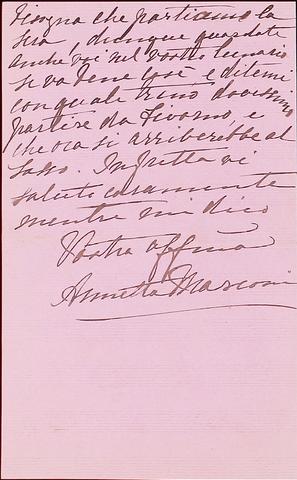 bisogna che partiamo la
sera, dunque guardate
anche voi nel vostro lunario
se va bene così e ditemi
con quale treno dovessimo
partire da Livorno, e
che ora si arriverebbe al
Sasso. In fretta vi
saluto caramente
mentre mi dico
Vostra affma
Annetta Marconi